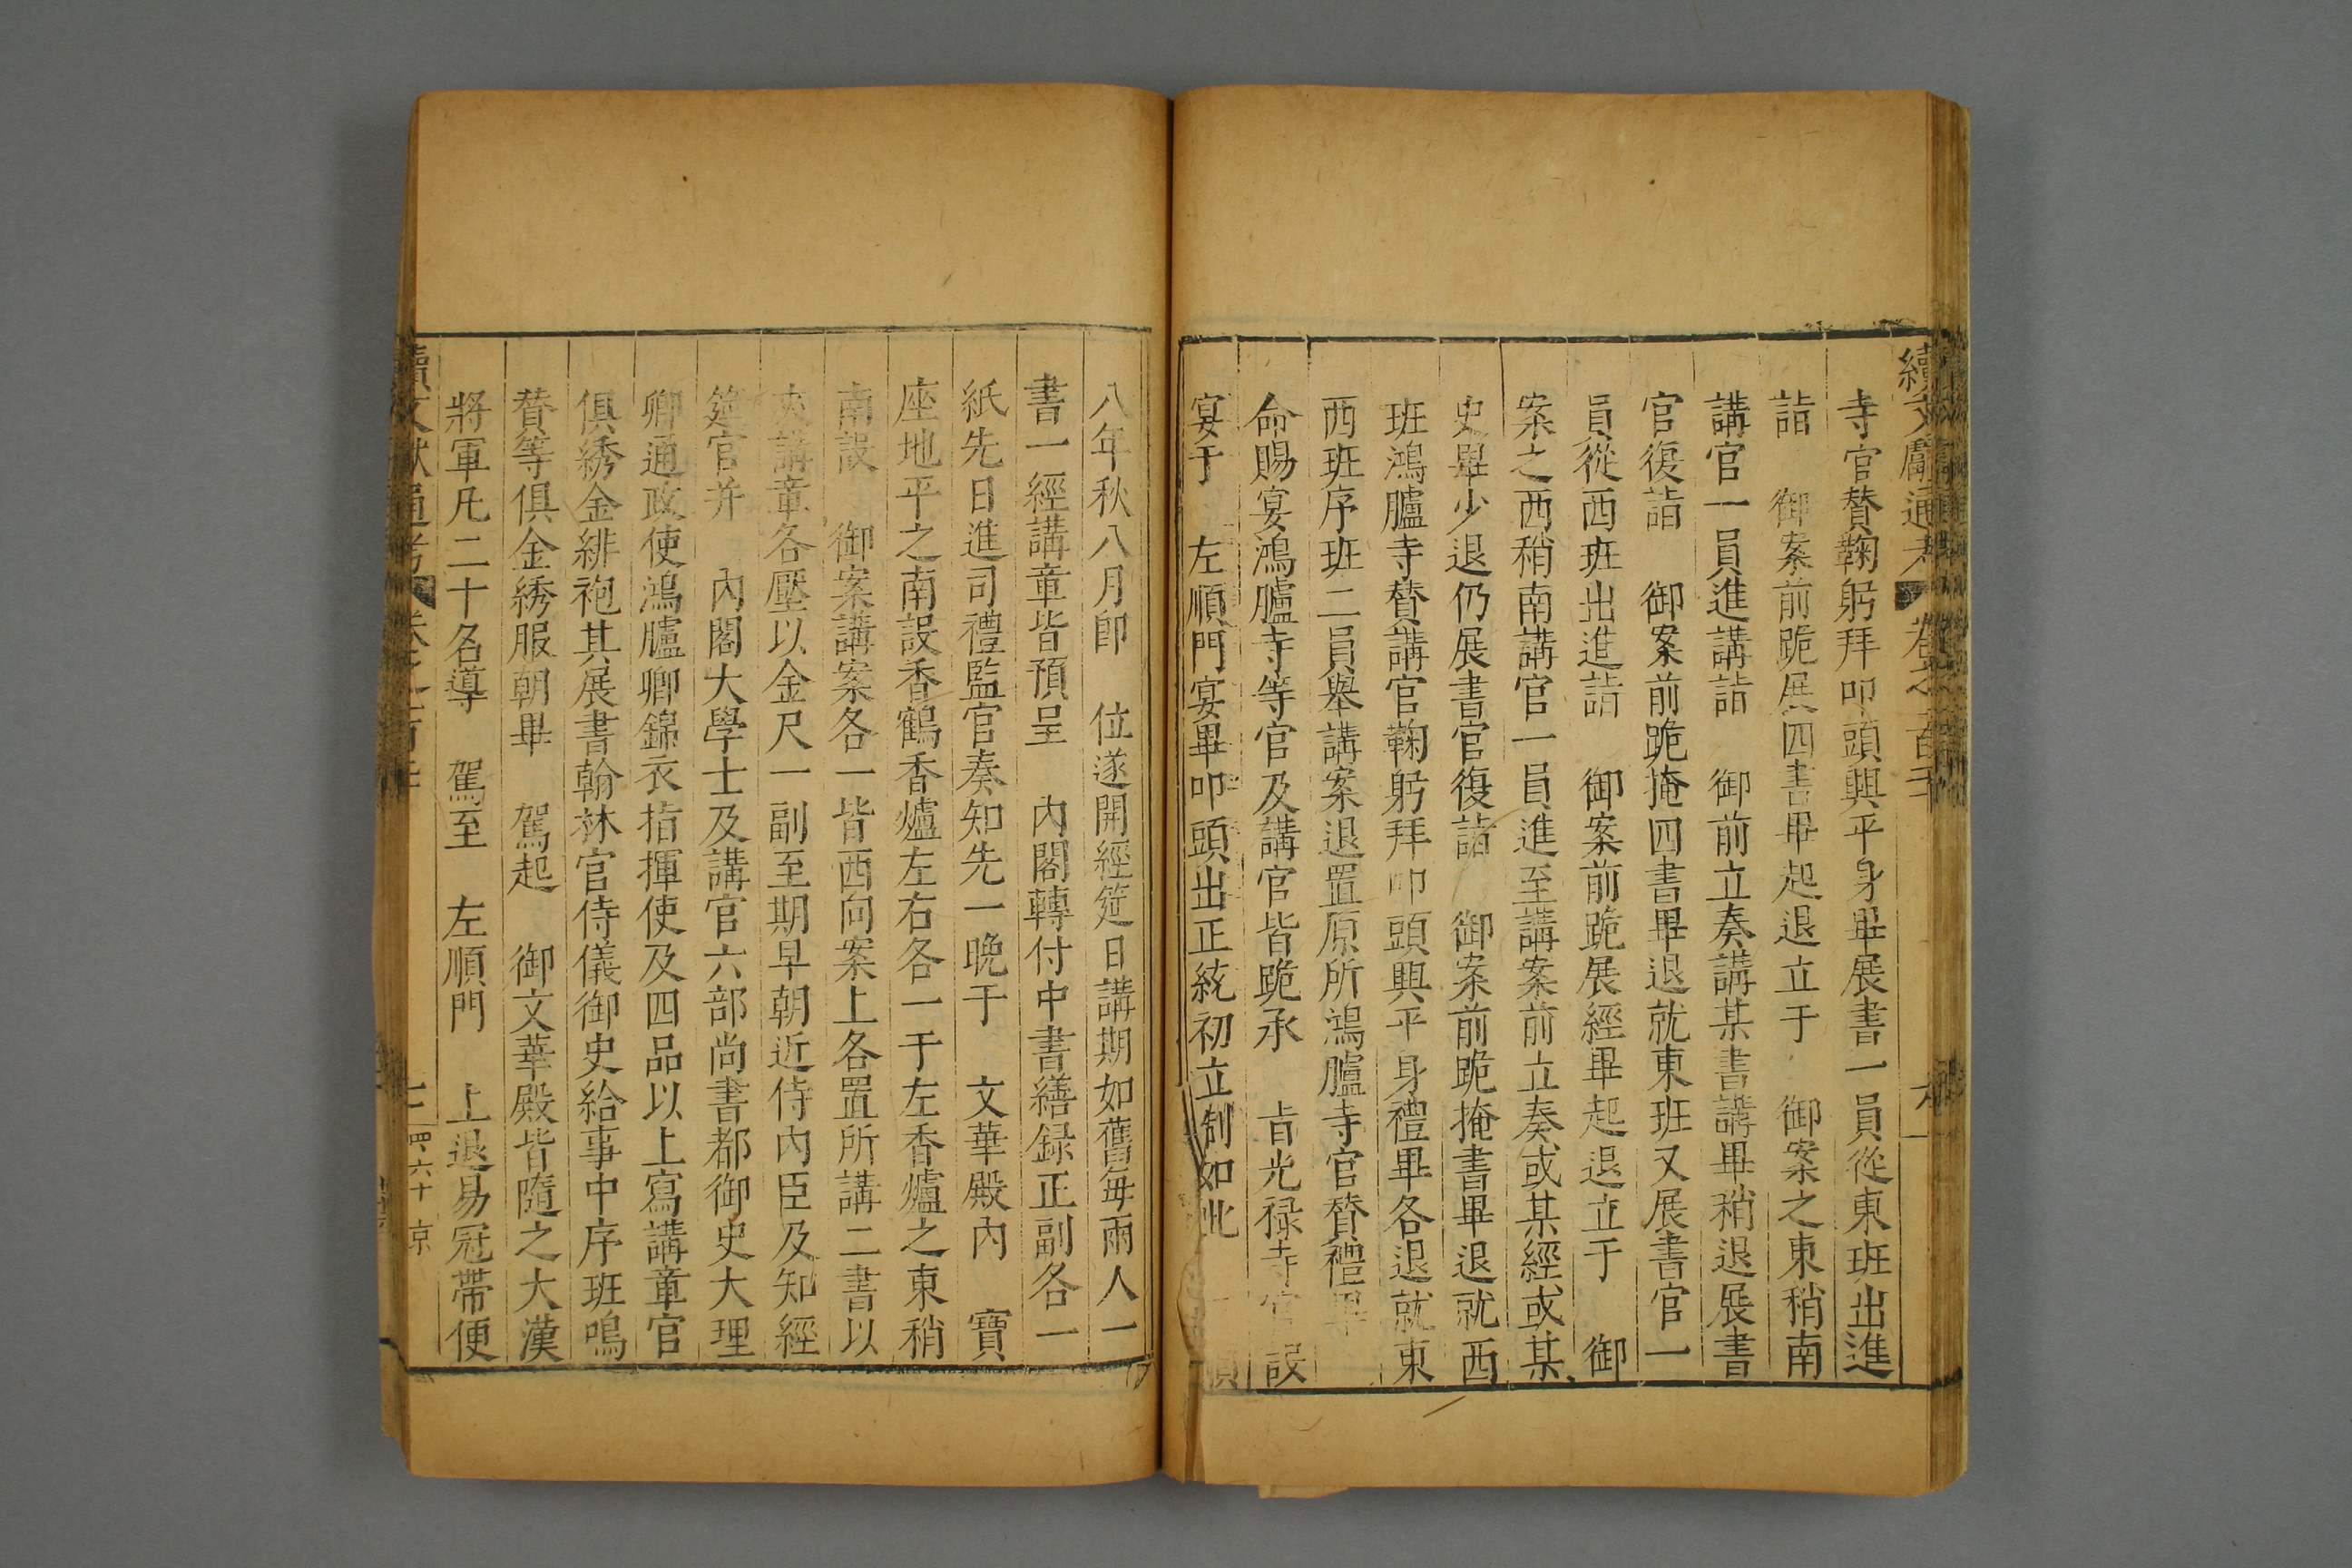 續文獻通考 卷之一百 六
寺官贊鞠躬拜叩頭興平身畢展書一員從東班出進
詣 御案前跪展四書畢起退立于 御案之東稍南
講官一員進講詣 御前立奏講某書講畢稍退展書
官復詣 御案前跪掩四書畢退就東班又展書官一
員從西班出進詣 御案前跪展經畢起退立于 御
案之西稍南講官一員進至講案前立奏或某經或某
史畢少退仍展書官復詣 御案前跪掩書畢退就西
班鴻臚寺贊講官鞠躬拜叩頭興平身禮畢各退就東
西班序班二員舉講案退置原所鴻臚寺官贊禮畢
命賜宴鴻臚寺等官及講官皆跪承 旨光祿寺官設
宴于 左順門宴畢叩頭出正統初立制如此 順
八年秋八月卽 位遂開經筵日講期如舊每兩人一
書一經講章皆預呈 內閣轉付中書繕録正副各一
紙先日進司禮監官奏知先一晚于 文華殿內 寶
座地平之南設香鶴香爐左右各一于左香爐之東稍
南設 御案講案各一皆西向案上各置所講二書以
夾講章各壓以金尺一副至期早朝近侍內臣及知經
筵官并 內閣大學士及講官六部尚書都御史大理
卿通政使鴻臚卿錦衣指揮使及四品以上寫講章官
俱綉金緋袍其展書翰林官侍儀御史給事中序班鳴
贊等俱金綉服朝畢 駕起 御文華殿皆隨之大漢
將軍凡二十名導 駕至 左順門 上退易冠帶便
續文獻通考 卷之一百 四六十 京